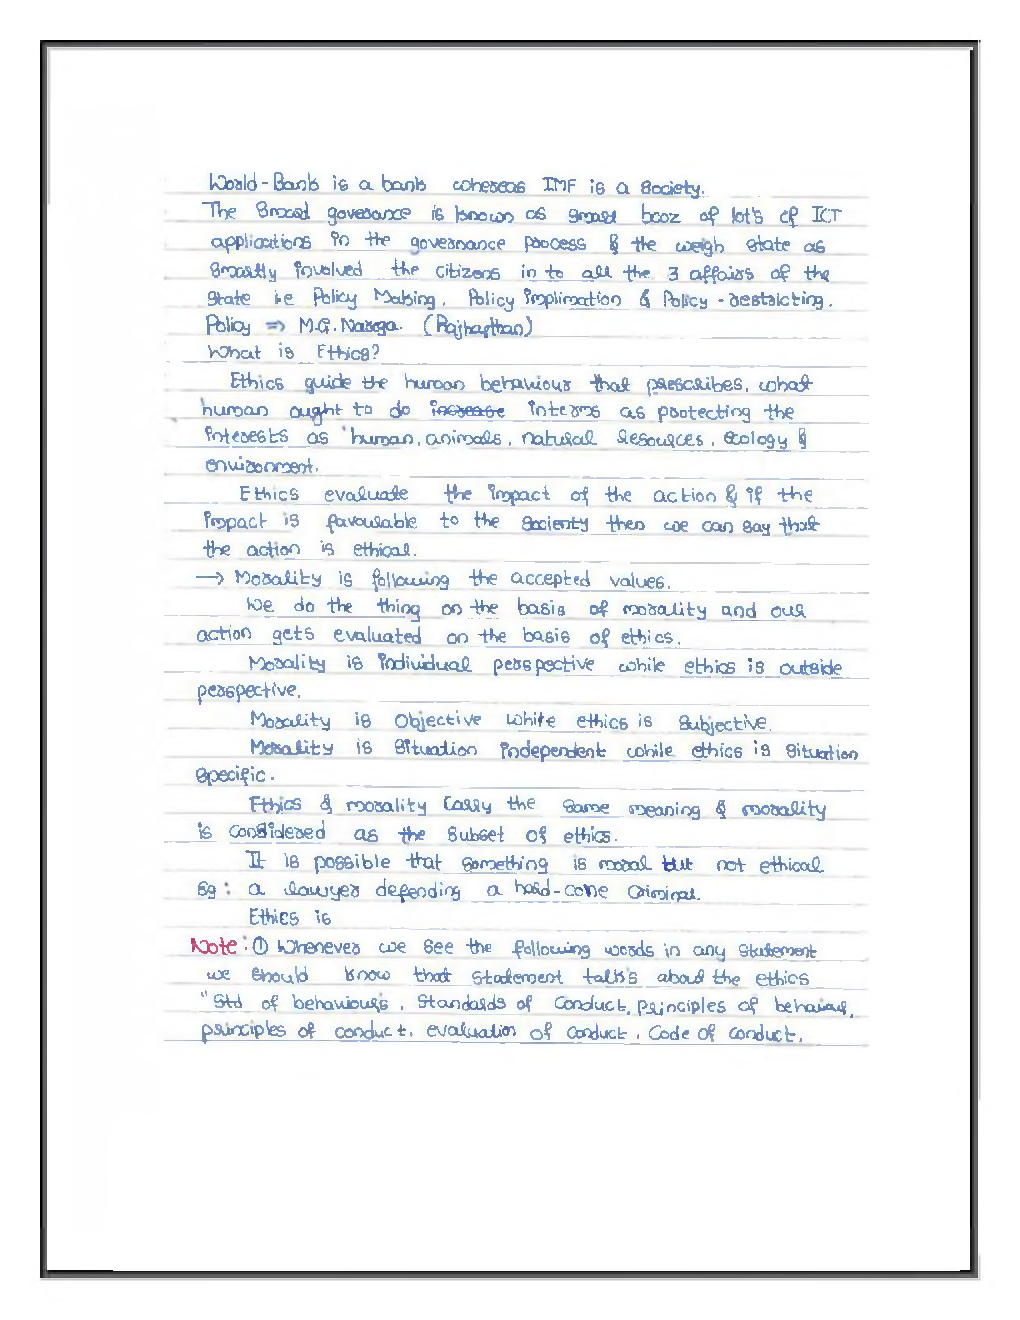 World-Bank is a bank whereas IMF is a Society.
The Broad goverance is known as Smart booz of lot's of ICT
applications in the governance process & the weigh State as
Broadly involved the citizens in to all the 3 affairs of the
State i.e Policy Making, Policy Implimation & Policy - restalcting.
Policy ⇒ M.G. Narega. (Rajhasthan)
What is Ethics?
Ethics guide the human behaviour that prescribes, what
human ought to do increase interms as protecting the
interests as human, animals, natural Resources, ecology &
environment.
Ethics evaluate the impact of the action & if the
impact is favourable to the Socienty then we can say that
the action is ethical.
→ Morality is following the accepted values.
We do the thing on the basis of morality and our
action gets evaluated on the basis of ethics.
Morality is individual perspective while ethics is outside
perspective.
Morality is Objective while ethics is Subjective.
Morality is Situation independent while ethics is Situation
Specific.
Ethics & morality Carry the Same meaning & morality
is Considered as the Subset of ethics.
It is possible that something is moral but not ethical
Eg: a lawyer defending a hard-core Criminal.
Ethics is
Note: ① Whenever we See the following words in any Statement
we Should know that Statement talk's about the ethics
"Std of behaviour's, Standards of Conduct, principles of behaiour,
principles of conduct, evaluation of conduct, Code of conduct,